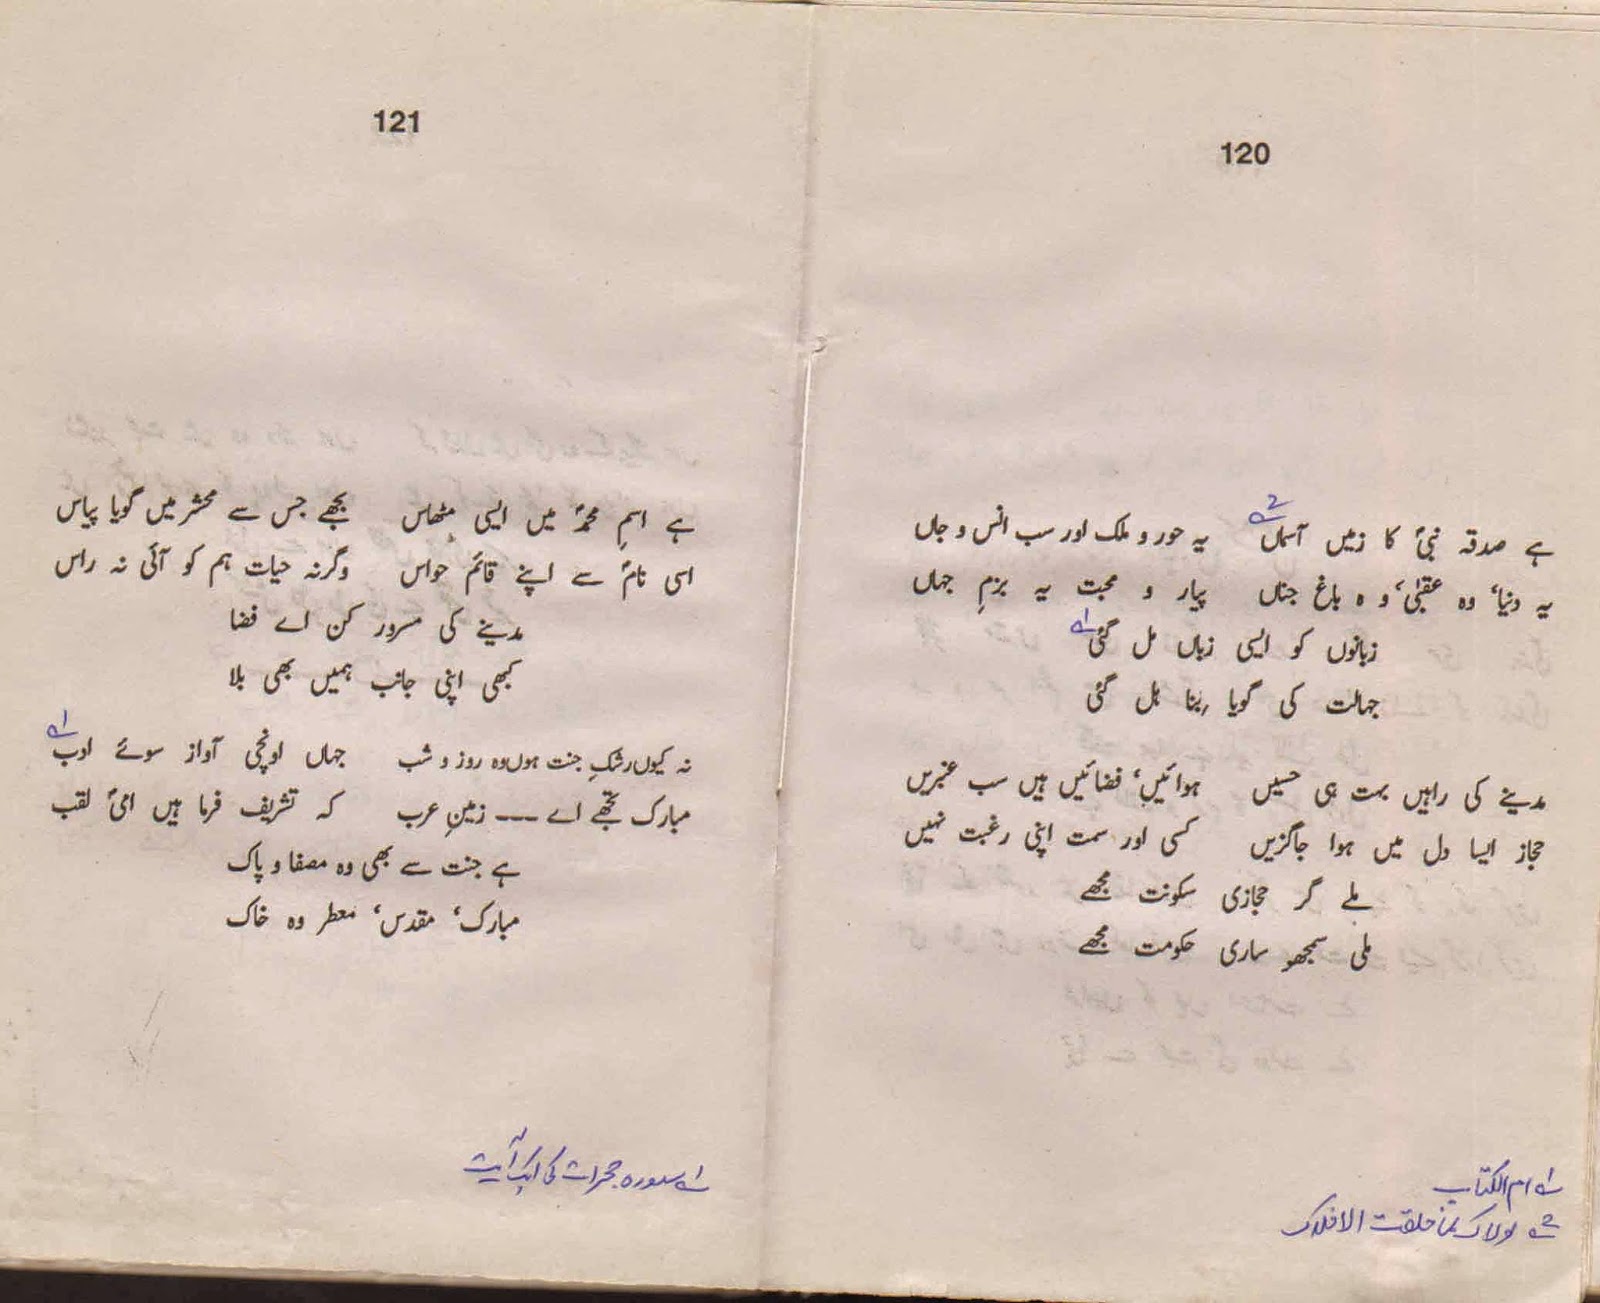 120
ہے صدقہ نبیؐ کا زمیں آسماں ؂2 یہ حور و ملک اور سب انس و جاں
یہ دنیا، وہ عقبیٰ، و ہ باغ جناں پیار و محبت یہ بزمِ جہاں
زبانوں کو ایسی زباں مل گئی ؂1
جہالت کی گویا بنا ہل گئی
مدینے کی راہیں بہت ہی حسیں ہوائیں، فضائیں ہیں سب عنبریں
حجاز ایسا دل میں ہوا جاگزیں کسی اور سمت اپنی رغبت نہیں
ملے گر حجازی سکونت مجھے
ملی سمجھو ساری حکومت مجھے
؂1 ام الکتاب
؂2 لولاک لما خلقت الافلاک
121
ہے اسمِ محمدؐ میں ایسی مٹھاس بجھے جس سے محشر میں گویا پیاس
اسی نامؐ سے اپنے قائم حواس وگرنہ حیات ہم کو آئی نہ راس
مدینے کی مسرور کن اے فضا
کبھی اپنی جانب ہمیں بھی بلا
نہ کیوں رشکِ جنت ہوں وہ روز و شب جہاں اونچی آواز سوئے ادب ؂1
مبارک تجھے اے --- زمینِ عرب کہ تشریف فرما ہیں امیؐ لقب
ہے جنت سے بھی وہ مصفا و پاک
مبارک، مقدس، معطر وہ خاک
؂1 سورہ حجرات کی ایک آیت